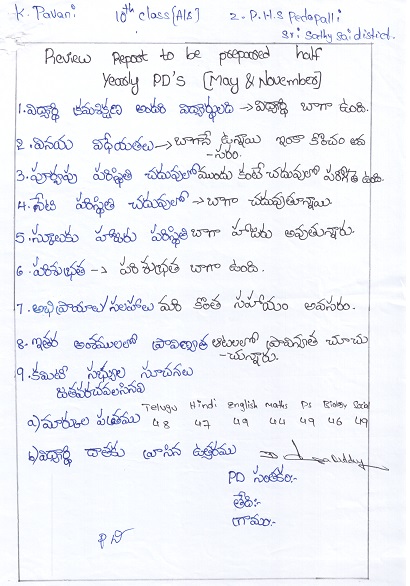 K. Pavani 10th class [A/S] Z.P.H.S Pedapalli
Sri Sathy Sai district.
Review Report to be prepared half
Yearly PD'S [May & November]
1. విద్యార్థి క్రమశిక్షణ అందరి విద్యార్థులది → విద్యార్థి బాగా ఉంది.
2. వినయ విధేయతలు → బాగానే ఉన్నాయి ఇంకా కొంచం అవ
-సరం.
3. పూర్వపు పరిస్థితి చదువులో ముందు కంటే చదువులో పరిగతి ఉంది.
4. నేటి పరిస్థితి చదువులో → బాగా చదువుతున్నాయి.
5. స్కూలుకు హాజరు పరిస్థితి బాగా హాజరు అవుతున్నారు.
6. పరిశుభ్రత → పరిశుభ్రత బాగా ఉంది.
7. అభిప్రాయాలు/సలహాలు మరి కొంత సహాయం అవసరం.
8. ఇతర అంశములలో ప్రావిణ్యత ఆటలలో ప్రావిణ్యత చూపు
-చున్నారు.
9. కమిటీ సభ్యుల సూచనలు
జతపరచవలసినవి
Telugu Hindi English Maths PS Biology Social
a) మార్కుల పత్రము 48 47 49 44 49 46 49
b) విద్యార్థి దాతకు వ్రాసిన ఉత్తరము
PD సంతకం:-
తేది:-
గ్రామం:-